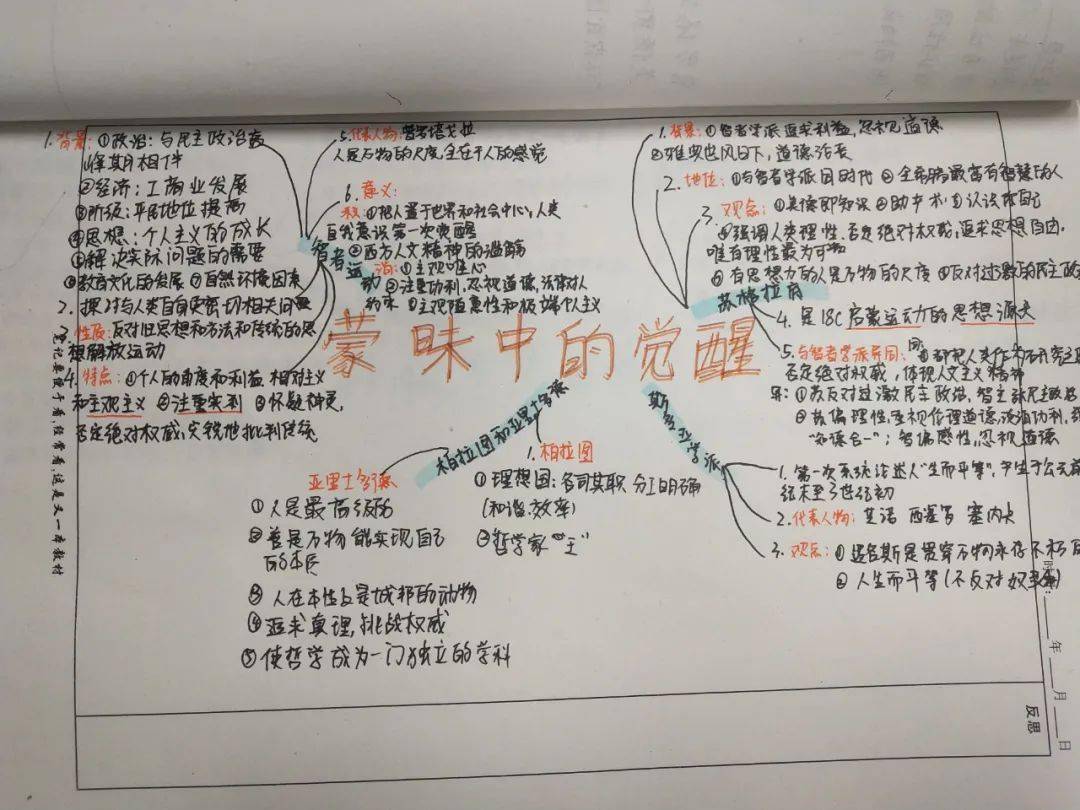 蒙昧中的觉醒
智者运动
1. 背景：①政治：与民主政治
峰期相伴
②经济：工商业发展
③阶级：平民地位提高
④思想：个人主义的成长
⑤解决实际问题的需要
⑥教育文化的发展 ⑦自然环境因素
2. 探讨与人类自身密切相关问题
3. 性质：反对旧思想和方法和传统的思
想解放运动
4. 特点：①个人的角度和利益 相对主义
和主观主义 ②注重实利 ③怀疑
否定绝对权威，批判传统
5. 代表人物：普罗塔戈拉
人是万物的尺度，全在于人的感觉
6. 意义：
积：①把人置于世界和社会中心，人类
自我意识第一次觉醒
②西方人文精神的滥觞
消：①主观唯心
②注重功利，忽视道德，法律对人
的
③主观随意性和极端个人主义
苏格拉底
1. 背景：①智者学派追求利益，忽视道德
②雅典世风日下，道德沦丧
2. 地位：①与智者学派同时代 ②全希腊最富有智慧的人
3. 观点：①美德即知识 ②助产术 ③认识你自己
④强调人类理性，否定绝对权威，追求思想自由，
唯有理性最为可靠
⑤有思想力的人是万物的尺度 ⑥反对过激的民主政
4. 是18C启蒙运动的思想源头
5. 与智者学派异同：同：①都把人类作为研究
否定绝对权威，体现人文主义精神
异：①苏反对过激民主政治，智主张民主政治
②苏偏理性，重视伦理道德，淡泊功利，
“知德合一”；智偏感性，忽视道德
柏拉图和亚里士多德
1. 柏拉图
①理想国：各司其职 分工明确
(和谐、效率)
②哲学家“王”
亚里士多德
①人是最高级的
②善是万物能实现自己
的本质
③人在本性上是城邦的动物
④追求真理，挑战权威
⑤使哲学成为一门独立的学科
斯多亚学派
1. 第一次系统论述人“生而平等”，产生于公元前
纪末至3世纪初
2. 代表人物：芝诺 西塞罗 塞内卡
3. 观点：①逻各斯是贯穿万物永存不朽
②人生而平等(不反对奴隶制)
笔记要便于看，经常看，这是又一本教材
时：
年
月
日
反思